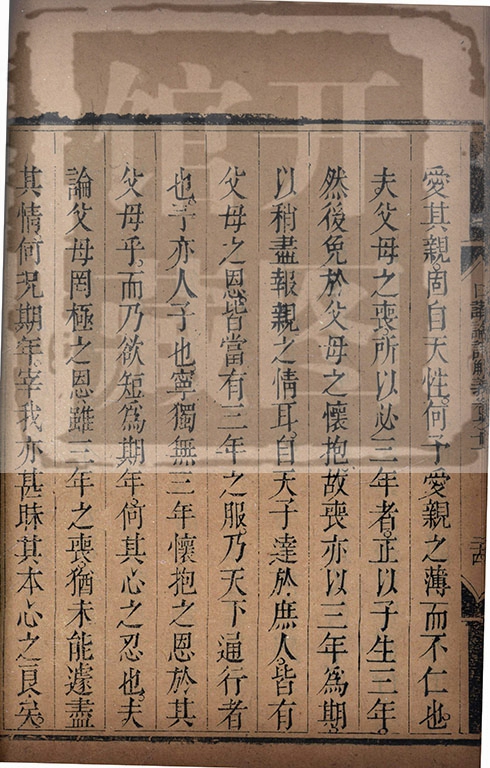 愛其親。固自天性。何予愛親之薄而不仁也。
夫父母之喪。所以必三年者。正以子生三年。
然後免於父母之懷抱。故喪亦以三年為期。
以稍盡報親之情耳。自天子達於庶人。皆有
父母之恩。皆當有三年之服。乃天下通行者
也。予亦人子也。寧獨無三年懷抱之恩於其
父母乎。而乃欲短為期年。何其心之忍也。夫
論父母罔極之恩。雖三年之喪。猶未能遽盡
其情。何況期年。宰我亦甚昧其本心之良矣。